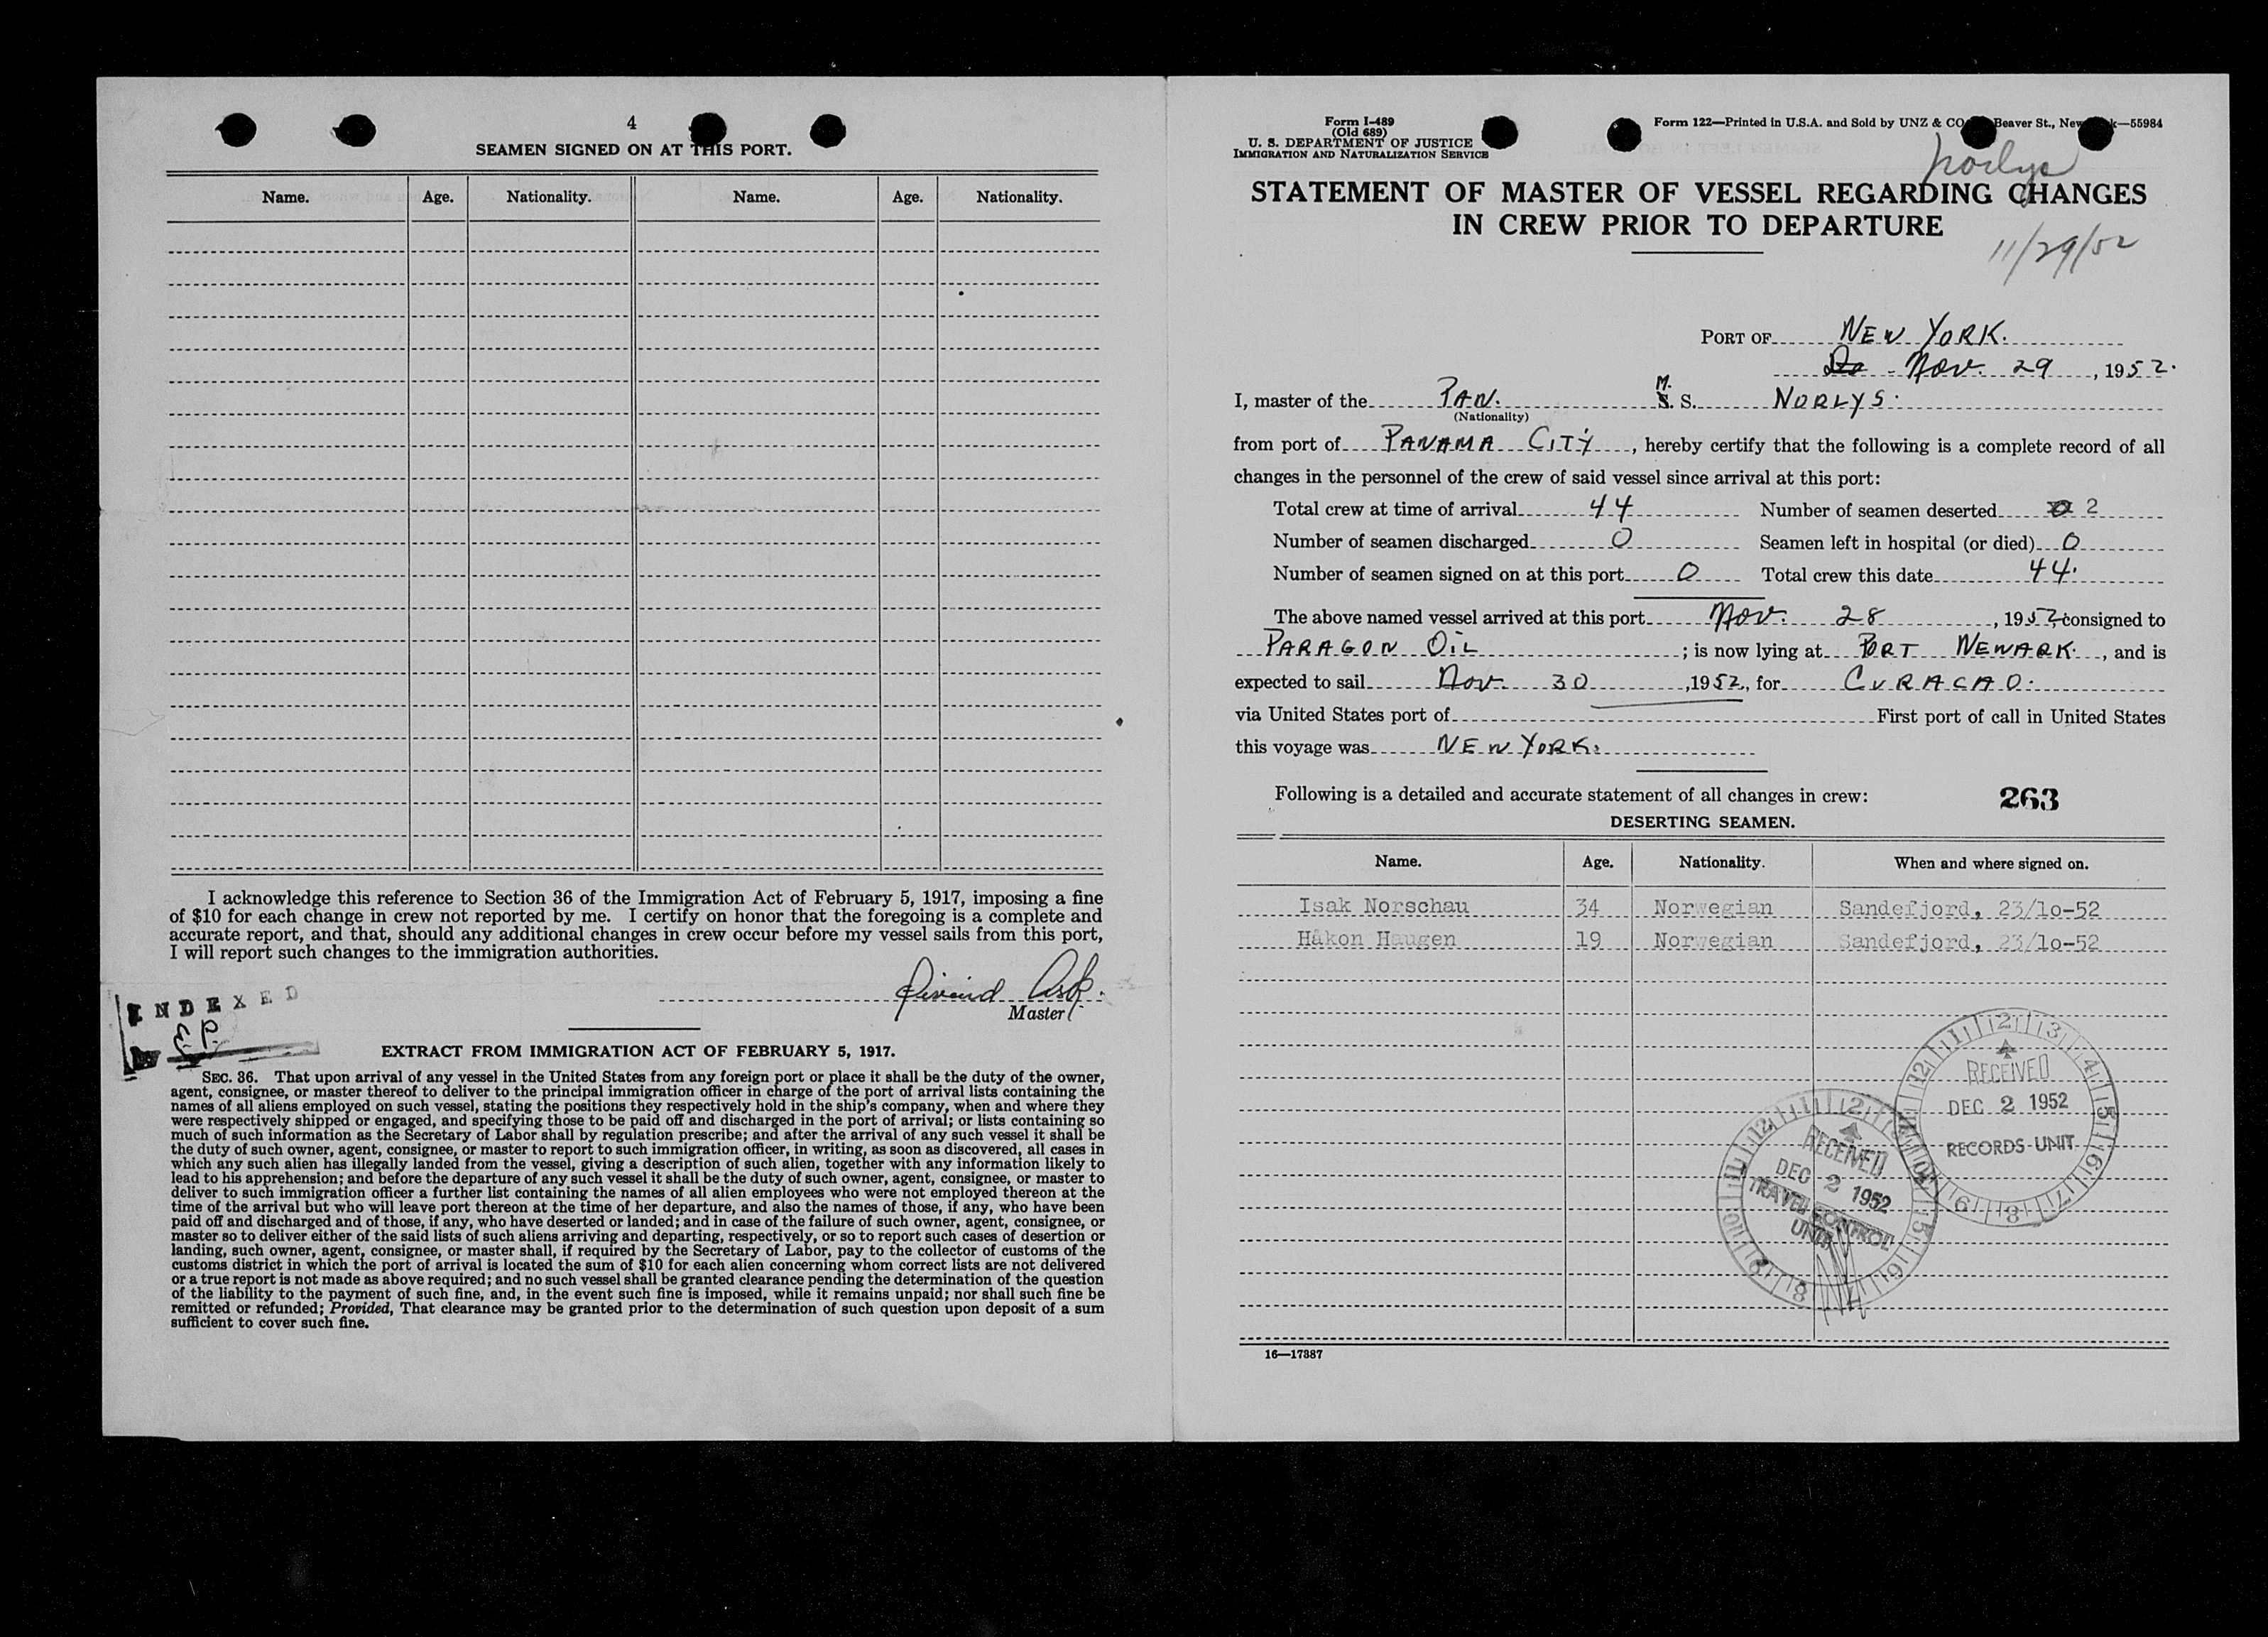 4
SEAMEN SIGNED ON AT THIS PORT.
Name. Age. Nationality. Name. Age. Nationality.
I acknowledge this reference to Section 36 of the Immigration Act of February 5, 1917, imposing a fine
of $10 for each change in crew not reported by me. I certify on honor that the foregoing is a complete and
accurate report, and that, should any additional changes in crew occur before my vessel sails from this port,
I will report such changes to the immigration authorities.
Eivind Ask.
Master
INDEXED
EXTRACT FROM IMMIGRATION ACT OF FEBRUARY 5, 1917.
SEC. 36. That upon arrival of any vessel in the United States from any foreign port or place it shall be the duty of the owner,
agent, consignee, or master thereof to deliver to the principal immigration officer in charge of the port of arrival lists containing the
names of all aliens employed on such vessel, stating the positions they respectively hold in the ship's company, when and where they
were respectively shipped or engaged, and specifying those to be paid off and discharged in the port of arrival; or lists containing so
much of such information as the Secretary of Labor shall by regulation prescribe; and after the arrival of any such vessel it shall be
the duty of such owner, agent, consignee, or master to report to such immigration officer, in writing, as soon as discovered, all cases in
which any such alien has illegally landed from the vessel, giving a description of such alien, together with any information likely to
lead to his apprehension; and before the departure of any such vessel it shall be the duty of such owner, agent, consignee, or master to
deliver to such immigration officer a further list containing the names of all alien employees who were not employed thereon at the
time of the arrival but who will leave port thereon at the time of her departure, and also the names of those, if any, who have been
paid off and discharged and of those, if any, who have deserted or landed; and in case of the failure of such owner, agent, consignee, or
master so to deliver either of the said lists of such aliens arriving and departing, respectively, or so to report such cases of desertion or
landing, such owner, agent, consignee, or master shall, if required by the Secretary of Labor, pay to the collector of customs of the
customs district in which the port of arrival is located the sum of $10 for each alien concerning whom correct lists are not delivered
or a true report is not made as above required; and no such vessel shall be granted clearance pending the determination of the question
of the liability to the payment of such fine, and, in the event such fine is imposed, while it remains unpaid; nor shall such fine be
remitted or refunded; Provided, That clearance may be granted prior to the determination of such question upon deposit of a sum
sufficient to cover such fine.
Form I-489
(Old 689)
U. S. DEPARTMENT OF JUSTICE
IMMIGRATION AND NATURALIZATION SERVICE
Form 122—Printed in U.S.A. and Sold by UNZ & CO Beaver St., New —55984
Norlys
STATEMENT OF MASTER OF VESSEL REGARDING CHANGES
IN CREW PRIOR TO DEPARTURE
11/29/52
PORT OF NEW YORK.
Nov. 29, 1952.
I, master of the PAN. M. S. S. NORLYS.
(Nationality)
from port of PANAMA CITY, hereby certify that the following is a complete record of all
changes in the personnel of the crew of said vessel since arrival at this port:
Total crew at time of arrival 44 Number of seamen deserted 2
Number of seamen discharged 0 Seamen left in hospital (or died) 0
Number of seamen signed on at this port 0 Total crew this date 44.
The above named vessel arrived at this port Nov. 28, 1952, consigned to
PARAGON OIL; is now lying at PORT NEWARK., and is
expected to sail Nov. 30, 1952, for CURACAO.
via United States port of First port of call in United States
this voyage was NEW YORK.
Following is a detailed and accurate statement of all changes in crew: 263
DESERTING SEAMEN.
Name. Age. Nationality. When and where signed on.
Isak Norschau 34 Norwegian Sandefjord, 23/10-52
Håkon Haugen 19 Norwegian Sandefjord, 23/10-52
RECEIVED
DEC 2 1952
RECORDS UNIT
RECEIVED
DEC 2 1952
TRAVEL CONTROL
UNIT
16—17387